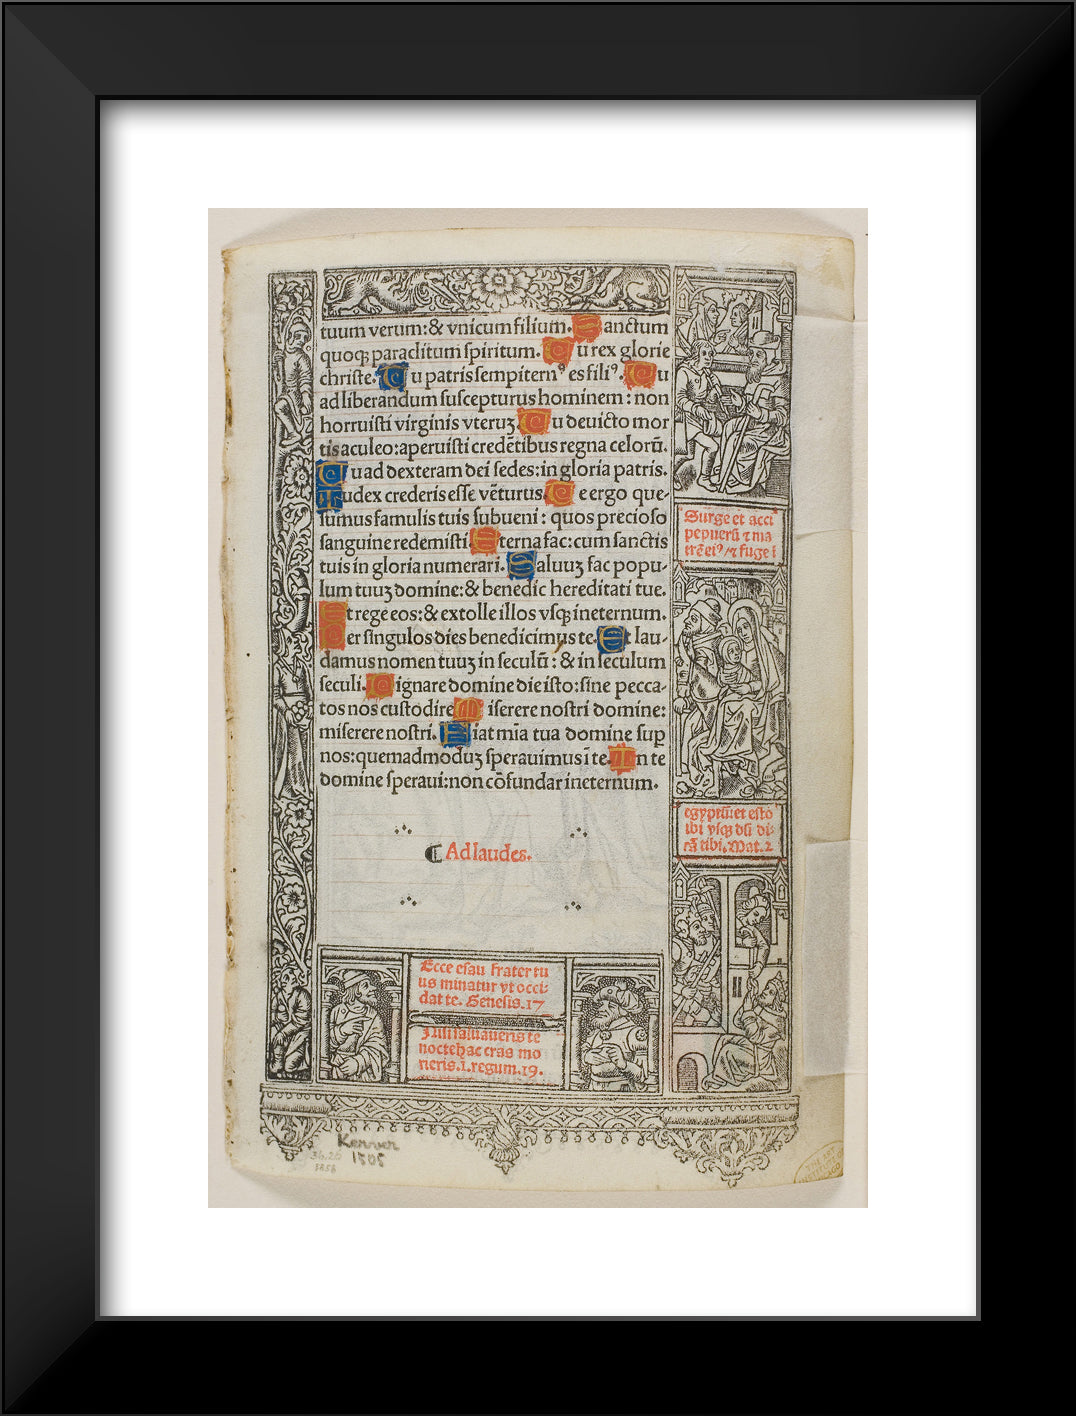 tuum verum:& vnicum filium. Sanctum
quoqꝫ paraclitum spiritum. Tu rex glorie
christe. Tu patris sempiternꝰ es filiꝰ. Tu
ad liberandum suscepturus hominem: non
horruisti virginis vteruꝫ. Tu deuicto mor
tis aculeo: aperuisti credētibus regna celorū.
Tu ad dexteram dei sedes: in gloria patris.
Iudex crederis esse vēturus. Te ergo que-
sumus famulis tuis subueni: quos precioso
sanguine redemisti. Eterna fac: cum sanctis
tuis in gloria numerari. Saluuꝫ fac popu-
lum tuuꝫ domine: & benedic hereditati tue.
Et rege eos: & extolle illos vsqꝫ in eternum.
Per singulos dies benedicimus te. Et lau-
damus nomen tuuꝫ in seculū: & in seculum
seculi. Dignare domine die isto: sine pecca-
tos nos custodire. Miserere nostri domine:
miserere nostri. Fiat mīa tua domine sup
nos: quemadmoduꝫ sperauimus ī te. In te
domine speraui: non cōfundar in eternum.
Ad laudes.
Surge et acci
pe puerū ⁊ ma
trē eiꝰ/⁊ fuge ī
egyptū: et esto
ibi vsqꝫ dū di-
cā tibi. Mat. 2
Ecce esau frater tu
us minatur vt occi-
dat te. Genesis. 17
Nisi saluaueris te
nocte hac cras mo
rieris. 1. regum. 19.
Kerver
1505